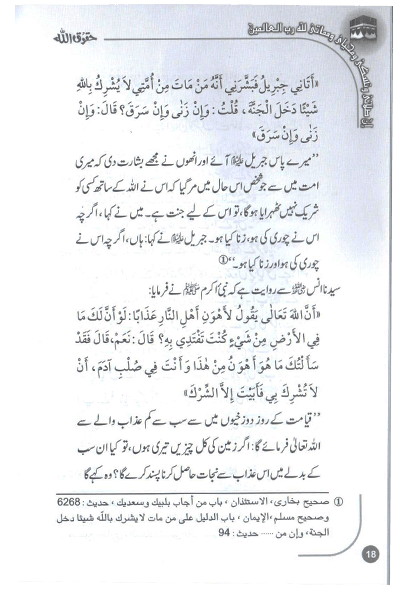 حقوق اللہ
إن صلاتي ونسكي ومحياي ومماتي لله رب العالمين
«أَتَانِي جِبْرِيلُ فَبَشَّرَنِي أَنَّهُ مَنْ مَاتَ مِنْ أُمَّتِي لَا يُشْرِكُ بِاللّٰهِ
شَيْئًا دَخَلَ الْجَنَّةَ، قُلْتُ: وَإِنْ زَنٰى وَإِنْ سَرَقَ؟ قَالَ: وَإِنْ
زَنٰى وَإِنْ سَرَقَ»
’’میرے پاس جبریل علیہ السلام آئے اور انھوں نے مجھے بشارت دی کہ میری
امت میں سے جو شخص اس حال میں مر گیا کہ اس نے اللہ کے ساتھ کسی کو
شریک نہیں ٹھہرایا ہوگا، تو اس کے لیے جنت ہے۔ میں نے کہا، اگرچہ
اس نے چوری کی ہو، زنا کیا ہو۔ جبریل علیہ السلام نے کہا: ہاں، اگرچہ اس نے
چوری کی ہو اور زنا کیا ہو۔‘‘①
سیدنا انس رضی اللہ عنہ سے روایت ہے کہ نبی اکرم ﷺ نے فرمایا:
«أَنَّ اللّٰهَ تَعَالٰى يَقُولُ لِأَهْوَنِ أَهْلِ النَّارِ عَذَابًا: لَوْ أَنَّ لَكَ مَا
فِي الْأَرْضِ مِنْ شَيْءٍ كُنْتَ تَفْتَدِي بِهِ؟ قَالَ: نَعَمْ، قَالَ فَقَدْ
سَأَلْتُكَ مَا هُوَ أَهْوَنُ مِنْ هٰذَا وَأَنْتَ فِي صُلْبِ آدَمَ، أَنْ
لَا تُشْرِكَ بِي فَأَبَيْتَ إِلَّا الشِّرْكَ»
’’قیامت کے روز دوزخیوں میں سے سب سے کم عذاب والے سے
اللہ تعالیٰ فرمائے گا: اگر زمین کی کل چیزیں تیری ہوں، تو کیا ان سب
کے بدلے میں اس عذاب سے نجات حاصل کرنا پسند کرے گا؟ وہ کہے گا
① صحیح بخاری، الاستئذان، باب من أجاب بلبیك وسعدیك، حدیث: 6268
وصحیح مسلم، الإیمان، باب الدلیل علی من مات لا یشرك باللّٰہ شیئا دخل
الجنة، وإن من ..... حدیث: 94
18